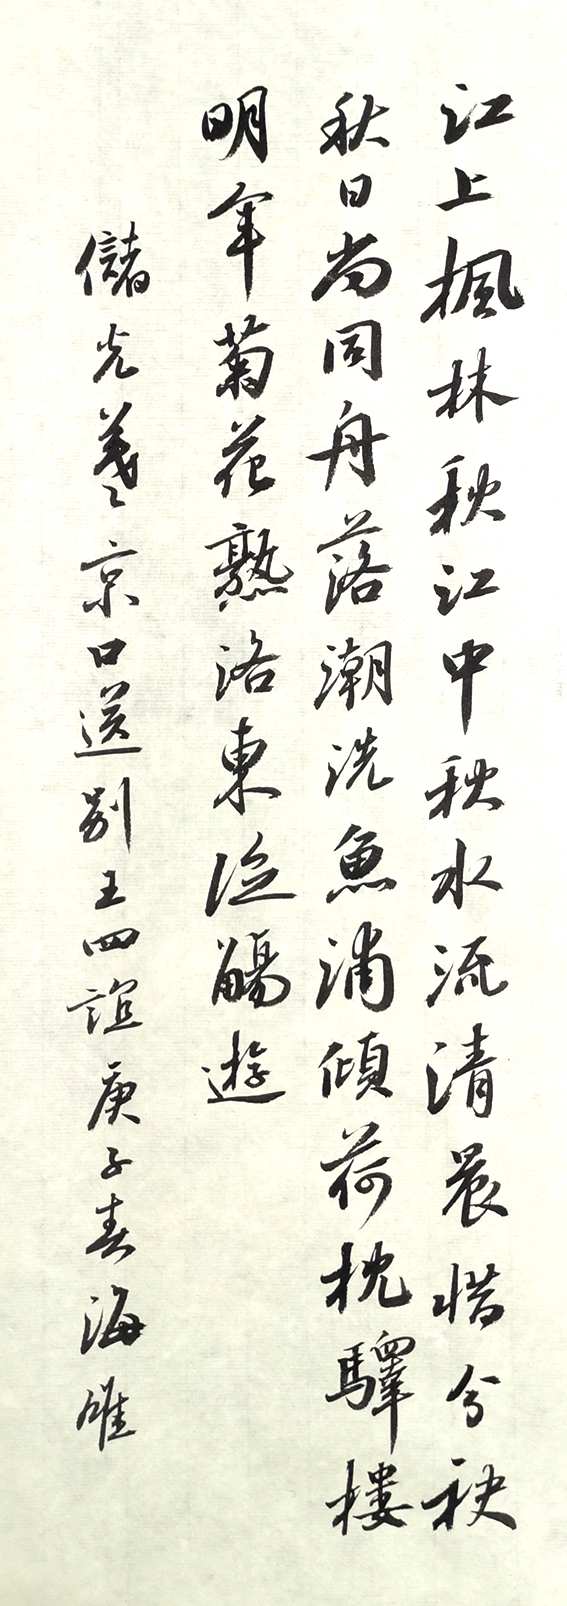 江上楓林秋江中秋水流清晨惜分袂
秋日尚同舟落潮洗魚浦傾荷枕驛樓
明年菊花熟洛東泛觴遊
儲光羲京口送別王四誼庚子春海雄